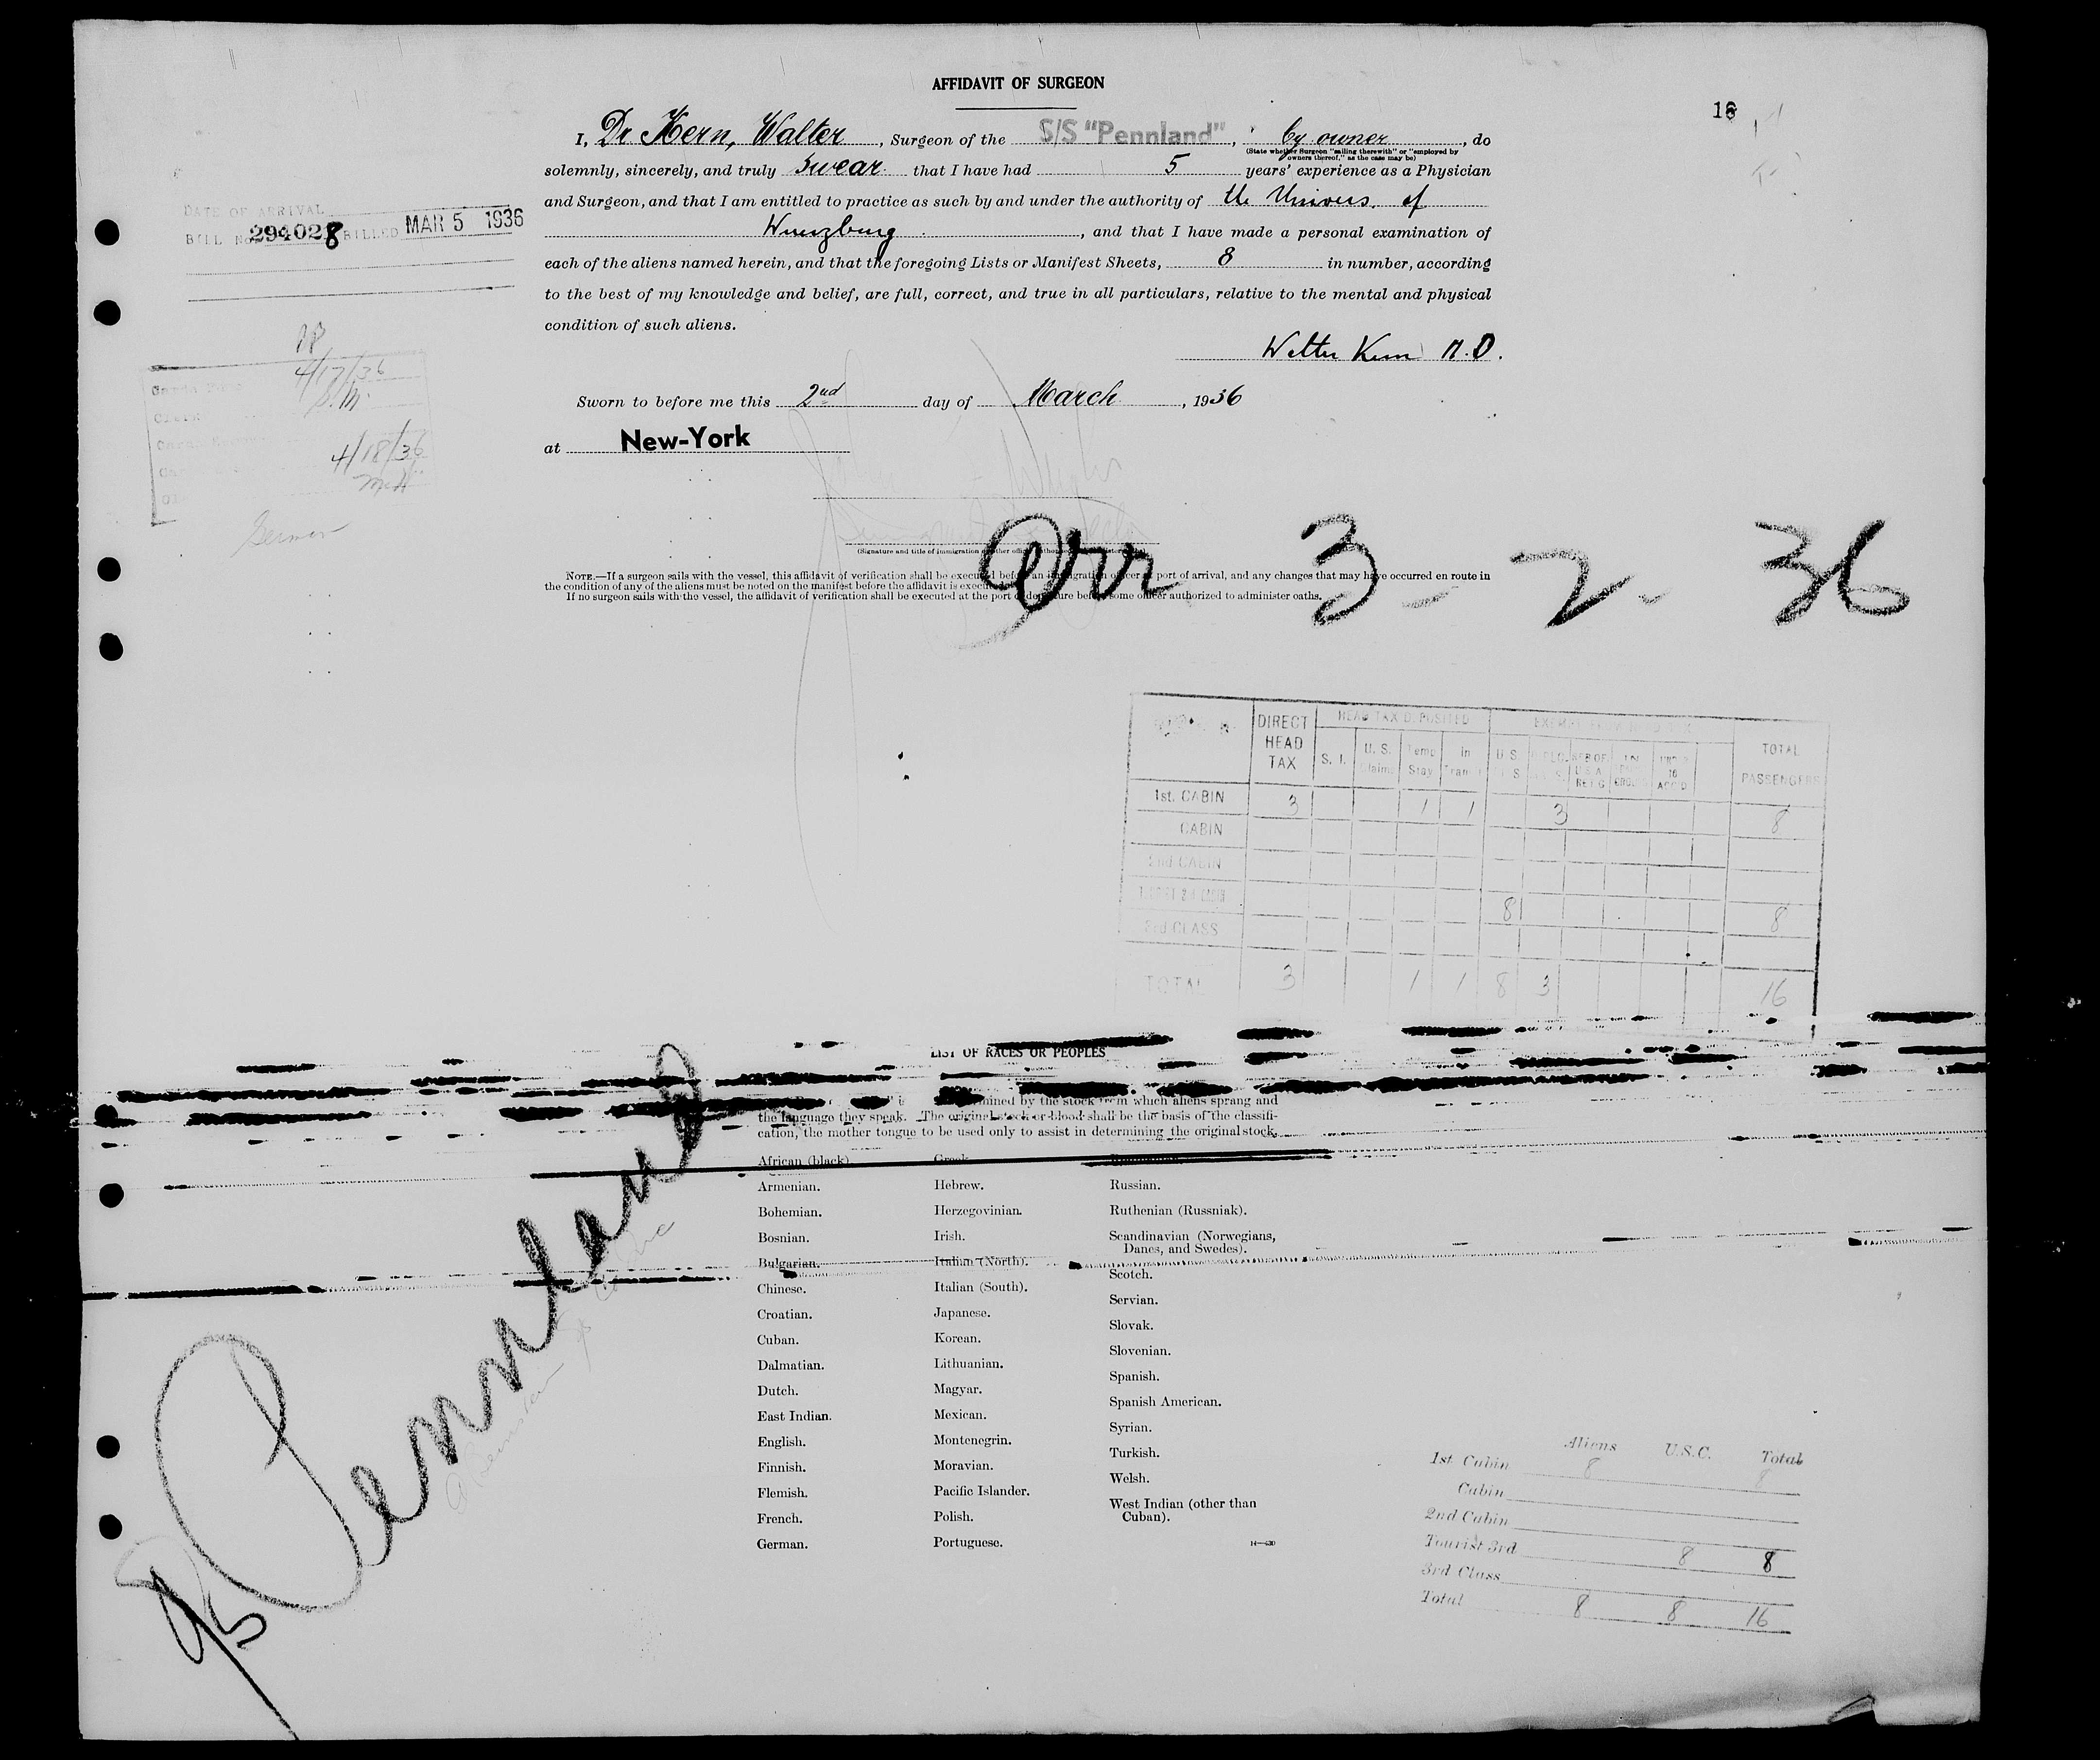 AFFIDAVIT OF SURGEON
I, Dr Kern, Walter, Surgeon of the S/S "Pennland", by owner, do
(State whether Surgeon "sailing therewith" or "employed by
owners thereof," as the case may be)
solemnly, sincerely, and truly swear that I have had 5 years' experience as a Physician
and Surgeon, and that I am entitled to practice as such by and under the authority of the Univers. of
Wuerzburg, and that I have made a personal examination of
each of the aliens named herein, and that the foregoing Lists or Manifest Sheets, 8 in number, according
to the best of my knowledge and belief, are full, correct, and true in all particulars, relative to the mental and physical
condition of such aliens.
Walter Kern M.D.
Sworn to before me this 2nd day of March, 1936
at New-York
DATE OF ARRIVAL
BILL No. 294028 BILLED MAR 5 1936
4/17/36
4/18/36
(Signature and title of immigration
Arr 3-2-36
NOTE.—If a surgeon sails with the vessel, this affidavit of verification shall be executed before an immigration officer port of arrival, and any changes that may have occurred en route in
the condition of any of the aliens must be noted on the manifest before the affidavit is executed
If no surgeon sails with the vessel, the affidavit of verification shall be executed at the port of departure before some officer authorized to administer oaths.
DIRECT HEAD TAX HEAD TAX DEPOSITED TOTAL PASSENGERS
S. I. U. S. Claims Temp Stay In Trans U.S.
1st. CABIN 3 1 1 3 8
CABIN
2nd CABIN
8 8
3rd CLASS
TOTAL 3 1 1 8 3 16
LIST OF RACES OR PEOPLES
determined by the stock from which aliens sprang and
the language they speak. The original stock or blood shall be the basis of the classifi-
cation, the mother tongue to be used only to assist in determining the original stock.
African (black)
Armenian.
Bohemian.
Bosnian.
Bulgarian.
Chinese.
Croatian.
Cuban.
Dalmatian.
Dutch.
East Indian.
English.
Finnish.
Flemish.
French.
German.
Greek
Hebrew.
Herzegovinian.
Irish.
Italian (North).
Italian (South).
Japanese.
Korean.
Lithuanian.
Magyar.
Mexican.
Montenegrin.
Moravian.
Pacific Islander.
Polish.
Portuguese.
Russian.
Ruthenian (Russniak).
Scandinavian (Norwegians,
Danes, and Swedes).
Scotch.
Servian.
Slovak.
Slovenian.
Spanish.
Spanish American.
Syrian.
Turkish.
Welsh.
West Indian (other than
Cuban).
Pennland
Aliens U.S.C. Total
1st Cabin 8 8
Cabin
2nd Cabin
Tourist 3rd 8 8
3rd Class
Total 8 8 16